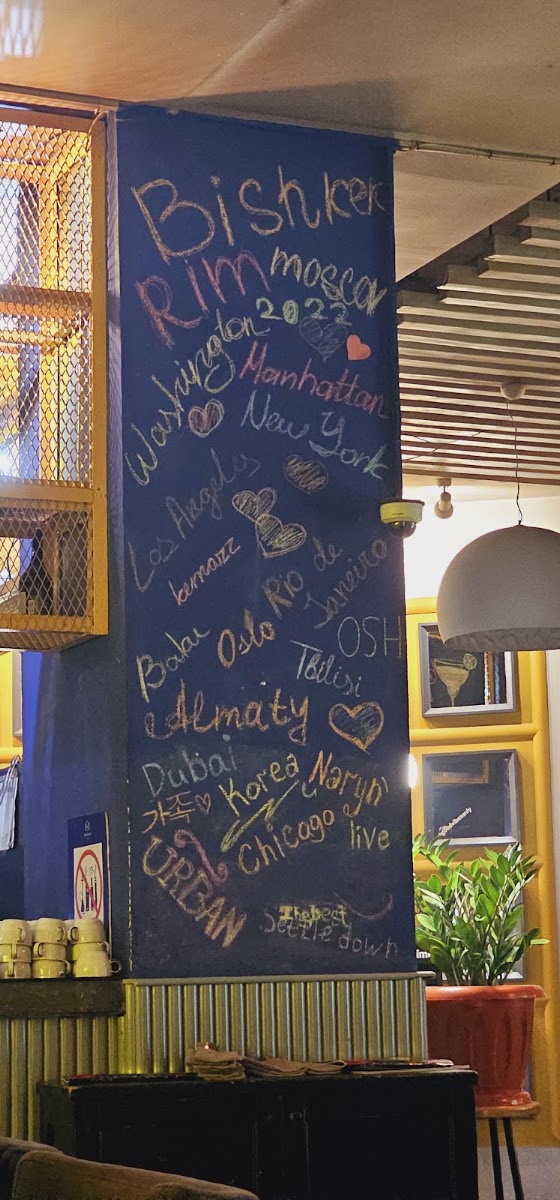 Bishkek
Rim
moscow
2022
Washington
Manhattan
New York
Los Angeles
Rio de
Janeiro
Oslo
OSH
Tbilisi
Almaty
Dubai
Korea
Naryn
가족♡
Chicago
live
URBAN
The best
Settle down